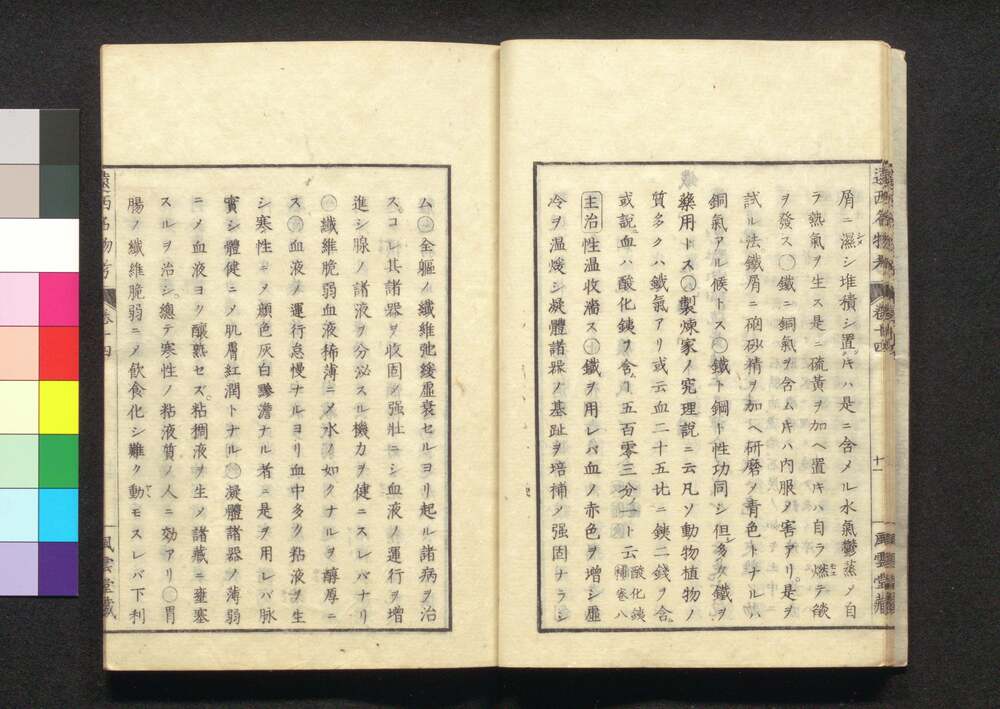 屑ニ濕シ堆積シ置キハ是ニ含メル水氣鬱蒸メ自
ラ熱氣ヲ生ス是ニ硫黄ヲ加ヘ置キハ自ラ燃テ燄
ヲ發ス○鐵ニ銅氣ヲ含ムキハ内服メ害アリ是ヲ
試ル法鐵屑ニ硇砂精ヲ加ヘ研磨メ青色トナルハ
銅氣アル候トス○鐵ト鋼ト性功同シ但多ク鐵ヲ
藥用トス○製煉家ノ究理説ニ云凡ソ動物植物ノ
質多クハ鐵氣アリ或云血二十五比ニ鐵二錢ヲ含
或説血ハ酸化鐵ヲ含五百零三分ノ一ト云
酸化鐵
補卷八
主治性温收濇ス○鐵ヲ用レバ血ノ赤色ヲ增シ虚
冷ヲ温煖シ凝體諸器ノ基趾ヲ培補メ强固ナラシ
遠西名物考 卷十四 十一 風雲堂藏
ム○全軀ノ纖維弛緩虚衰セルヨリ起ル諸病ヲ治
スコレ其諸器ヲ收固メ强壯ニシ血液ノ運行ヲ增
進シ腺ノ諸液ヲ分泌スル機力ヲ健ニスレバナリ
○纖維脆弱血液稀薄ニメ水ノ如クナルヲ醇厚ニ
ス○血液ノ運行怠慢ナルヨリ血中多ク粘液ヲ生
シ寒性ニメ顔色灰白黲澹ナル者ニ是ヲ用レバ脉
實シ體健ニメ肌膚紅潤トナル○凝體諸器ノ薄弱
ニメ血液ヨク釀熟セズ粘稠液ヲ生メ諸藏ニ壅塞
スルヲ治シ總テ寒性ノ粘液質ノ人ニ効アリ○胃
腸ノ纖維脆弱ニメ飲食化シ難ク動モスレバ下利
遠西名物考 卷十四 風雲堂藏